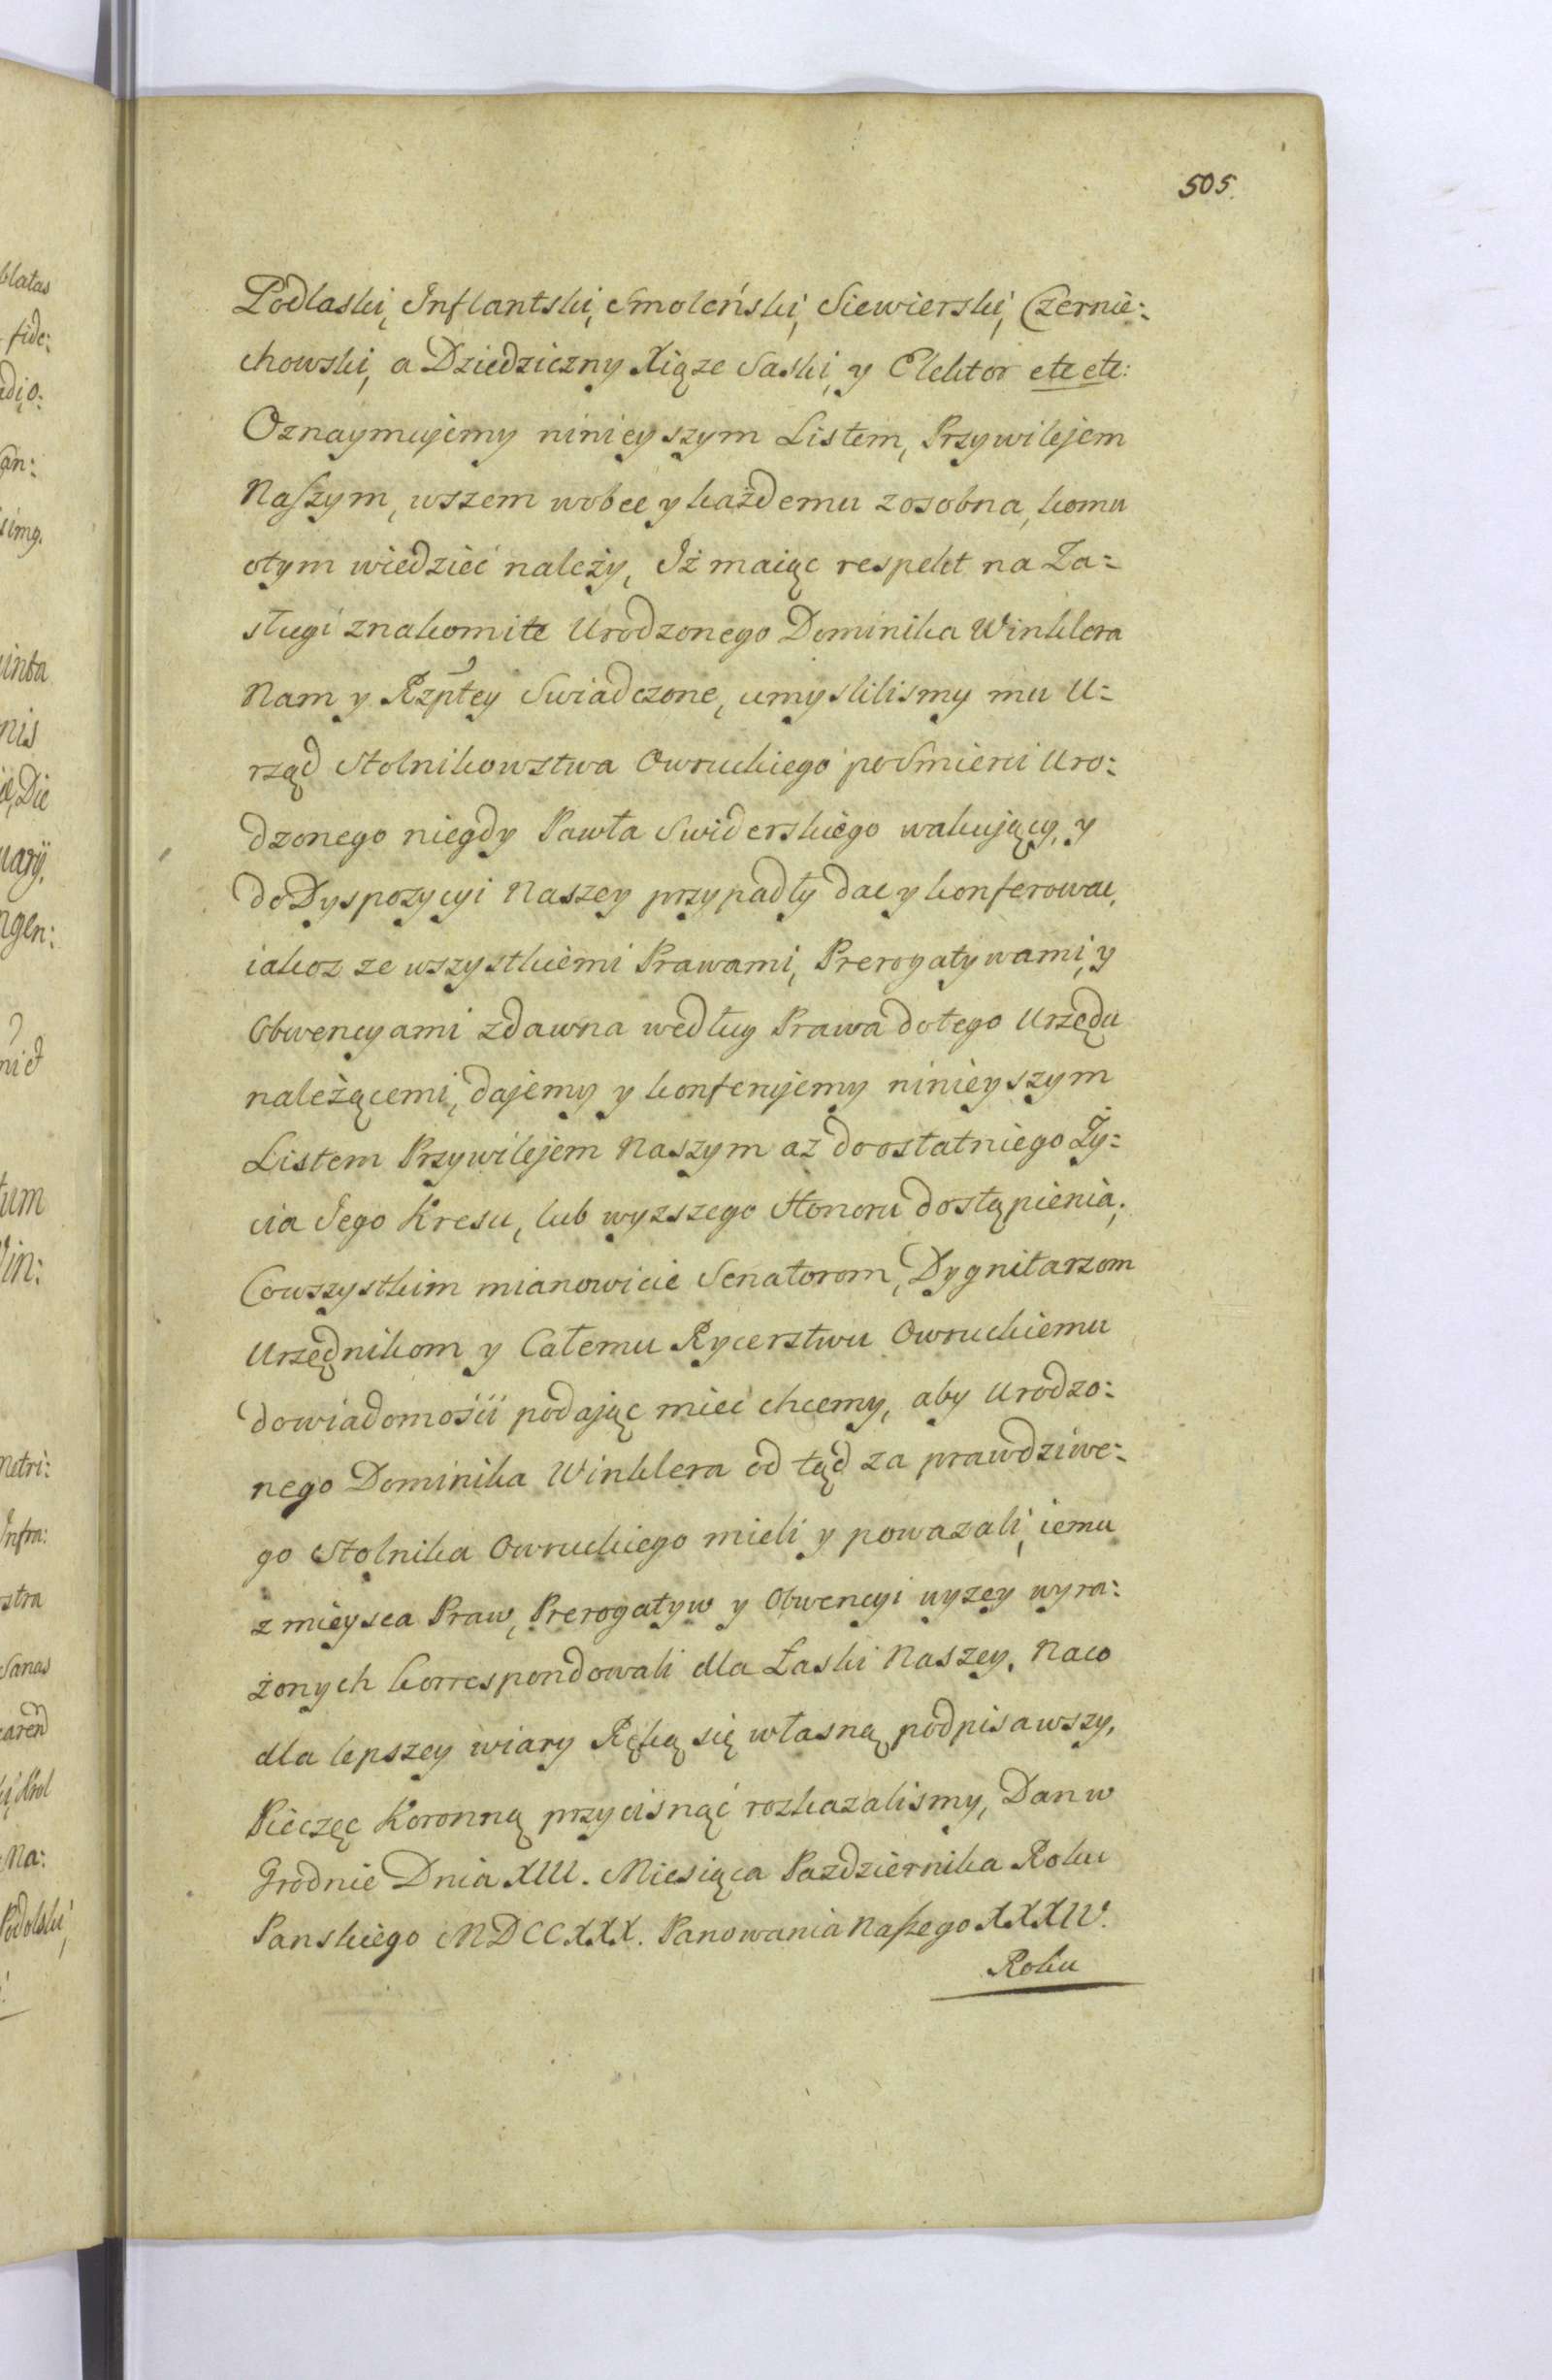 505.
Podlaski, Inflantski, Smoleński, Siewierski, Czernie:
chowski, a Dziedziczny Xiąze Saski, y Elektor etc etc:
Oznaymujemy ninieyszym Listem, Przywilejem
Naszym, wszem wobec y każdemu zosobna, komu
otym wiedzieć należy, Iż maiąc respekt na Za:
sługi znakomite Urodzonego Dominika Winklera
Nam y Rzptey Swiadczone, umyslilismy mu U:
rząd Stolnikowstwa Owruckiego po Smierci Uro:
dzonego niegdy Pawła Swiderskiego wakujący, y
do Dyspozycyi Naszey przypadły dac y konferowac,
iakoz ze wszystkiemi Prawami, Prerogatywami, y
Obwencyami zdawna według Prawa dotego Urzędu
należącemi, dajemy y konferujemy ninieyszym
Listem Przywilejem Naszym az do ostatniego Ży:
cia Jego Kresu, lub wyzszego Honoru dostąpienia;
Co wszystkim mianowicie Senatorom, Dygnitarzom
Urzędnikom y Całemu Rycerstwu Owruckiemu
dowiadomości podając miec chcemy, aby Urodzo:
nego Dominika Winklera od tąd za prawdziwe:
go Stolnika Owruckiego mieli y powazali, iemu
z mieysca Praw, Prerogatyw y Obwencyi wyzey wyra:
żonych korrespondowali dla Łaski Naszey. Naco
dla lepszey wiary Ręką się własną podpisawszy,
Pieczęc Koronną przycisnąć rozkazalismy, Dan w
Grodnie Dnia XIII. Miesiąca Pazdziernika Roku
Panskiego MDCCXXX. Panowania Naszego XXXIV.
Roku
blatas
fide:
dio:
inta
nis
Die
uary,
ngen:
tum
Win:
Metri:
Infra:
stra
Na:
Podolski,